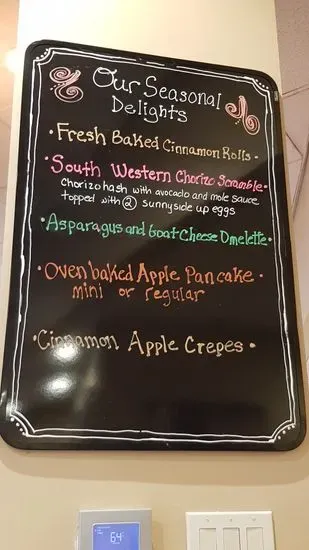 Our Seasonal
Delights
• Fresh Baked Cinnamon Rolls •
• South Western Chorizo Scramble •
Chorizo hash with avocado and mole sauce
topped with ② sunnyside up eggs
• Asparagus and Goat Cheese Omelette •
• Oven baked Apple Pancake •
mini or regular
• Cinnamon Apple Crepes •
64